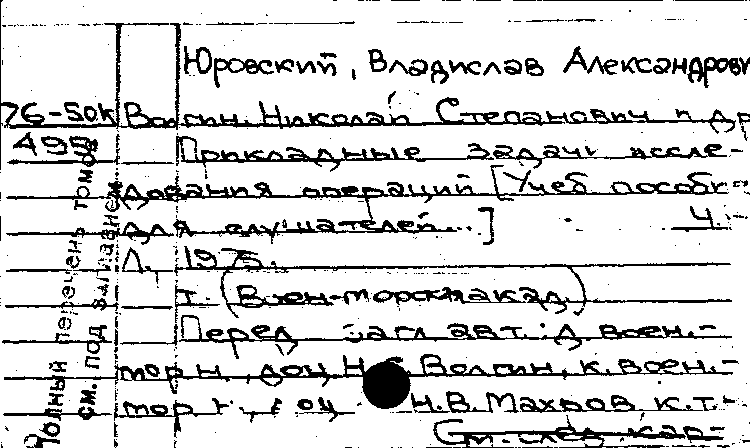 Юровский, Владислав Александрови
76-50к Волгин, Николай Степанович и др
495 Прикладные задачи иссле-
дования операций [Учеб. пособие
для слушателей...] Ч.-
Л., 1975.
т. (Воен-морск. акад.)
Перед загл. авт.: д. воен.-
мор. н., доц. Н.С. Волгин, к. воен.-
мор. н., доц. Н.В. Махров, к.т.-
См. след. кар-
Полный перечень томов
см. под заглавием